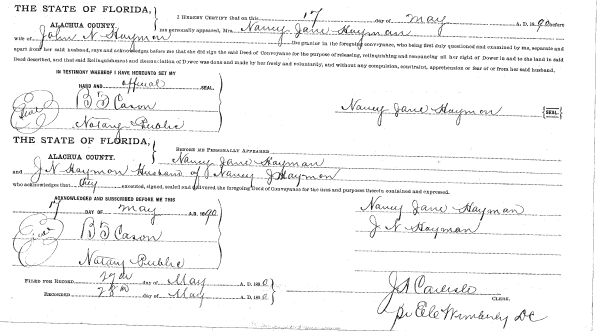 THE STATE OF FLORIDA,
ALACHUA COUNTY.
I HEREBY CERTIFY that on this 17 day of May A. D. 1890 before
me personally appeared, Mrs. Nancy Jane Haymon
wife of John N. Haymon the grantor in the foregoing conveyance, who being first duly questioned and examined by me, separate and
apart from her said husband, says and acknowledges before me that she did sign the said Deed of Conveyance for the purpose of releasing, relinquishing and renouncing all her right of Dower in and to the land in said
Deed described, and that said Relinquishment and Renunciation of Dower was done and made by her freely and voluntarily, and without any compulsion, constraint, apprehension or fear of or from her said husband.
IN TESTIMONY WHEREOF I HAVE HEREUNTO SET MY
HAND AND official SEAL.
Seal
Cason
Nancy Jane Haymon SEAL.
Notary Public
THE STATE OF FLORIDA,
ALACHUA COUNTY.
BEFORE ME PERSONALLY APPEARED
Nancy Jane Haymon
and J N Haymon Husband of Nancy J Haymon
who acknowledges that they executed, signed, sealed and delivered the foregoing Deed of Conveyance for the uses and purposes therein contained and expressed.
ACKNOWLEDGED AND SUBSCRIBED BEFORE ME THIS
17 DAY OF May A. D. 1890
Nancy Jane Haymon
J. N Haymon
Seal
Cason
Notary Public
FILED FOR RECORD 27th day of May A. D. 1890
RECORDED 28th day of May A. D. 1890
J A Carlisle CLERK.
Wimberly DC